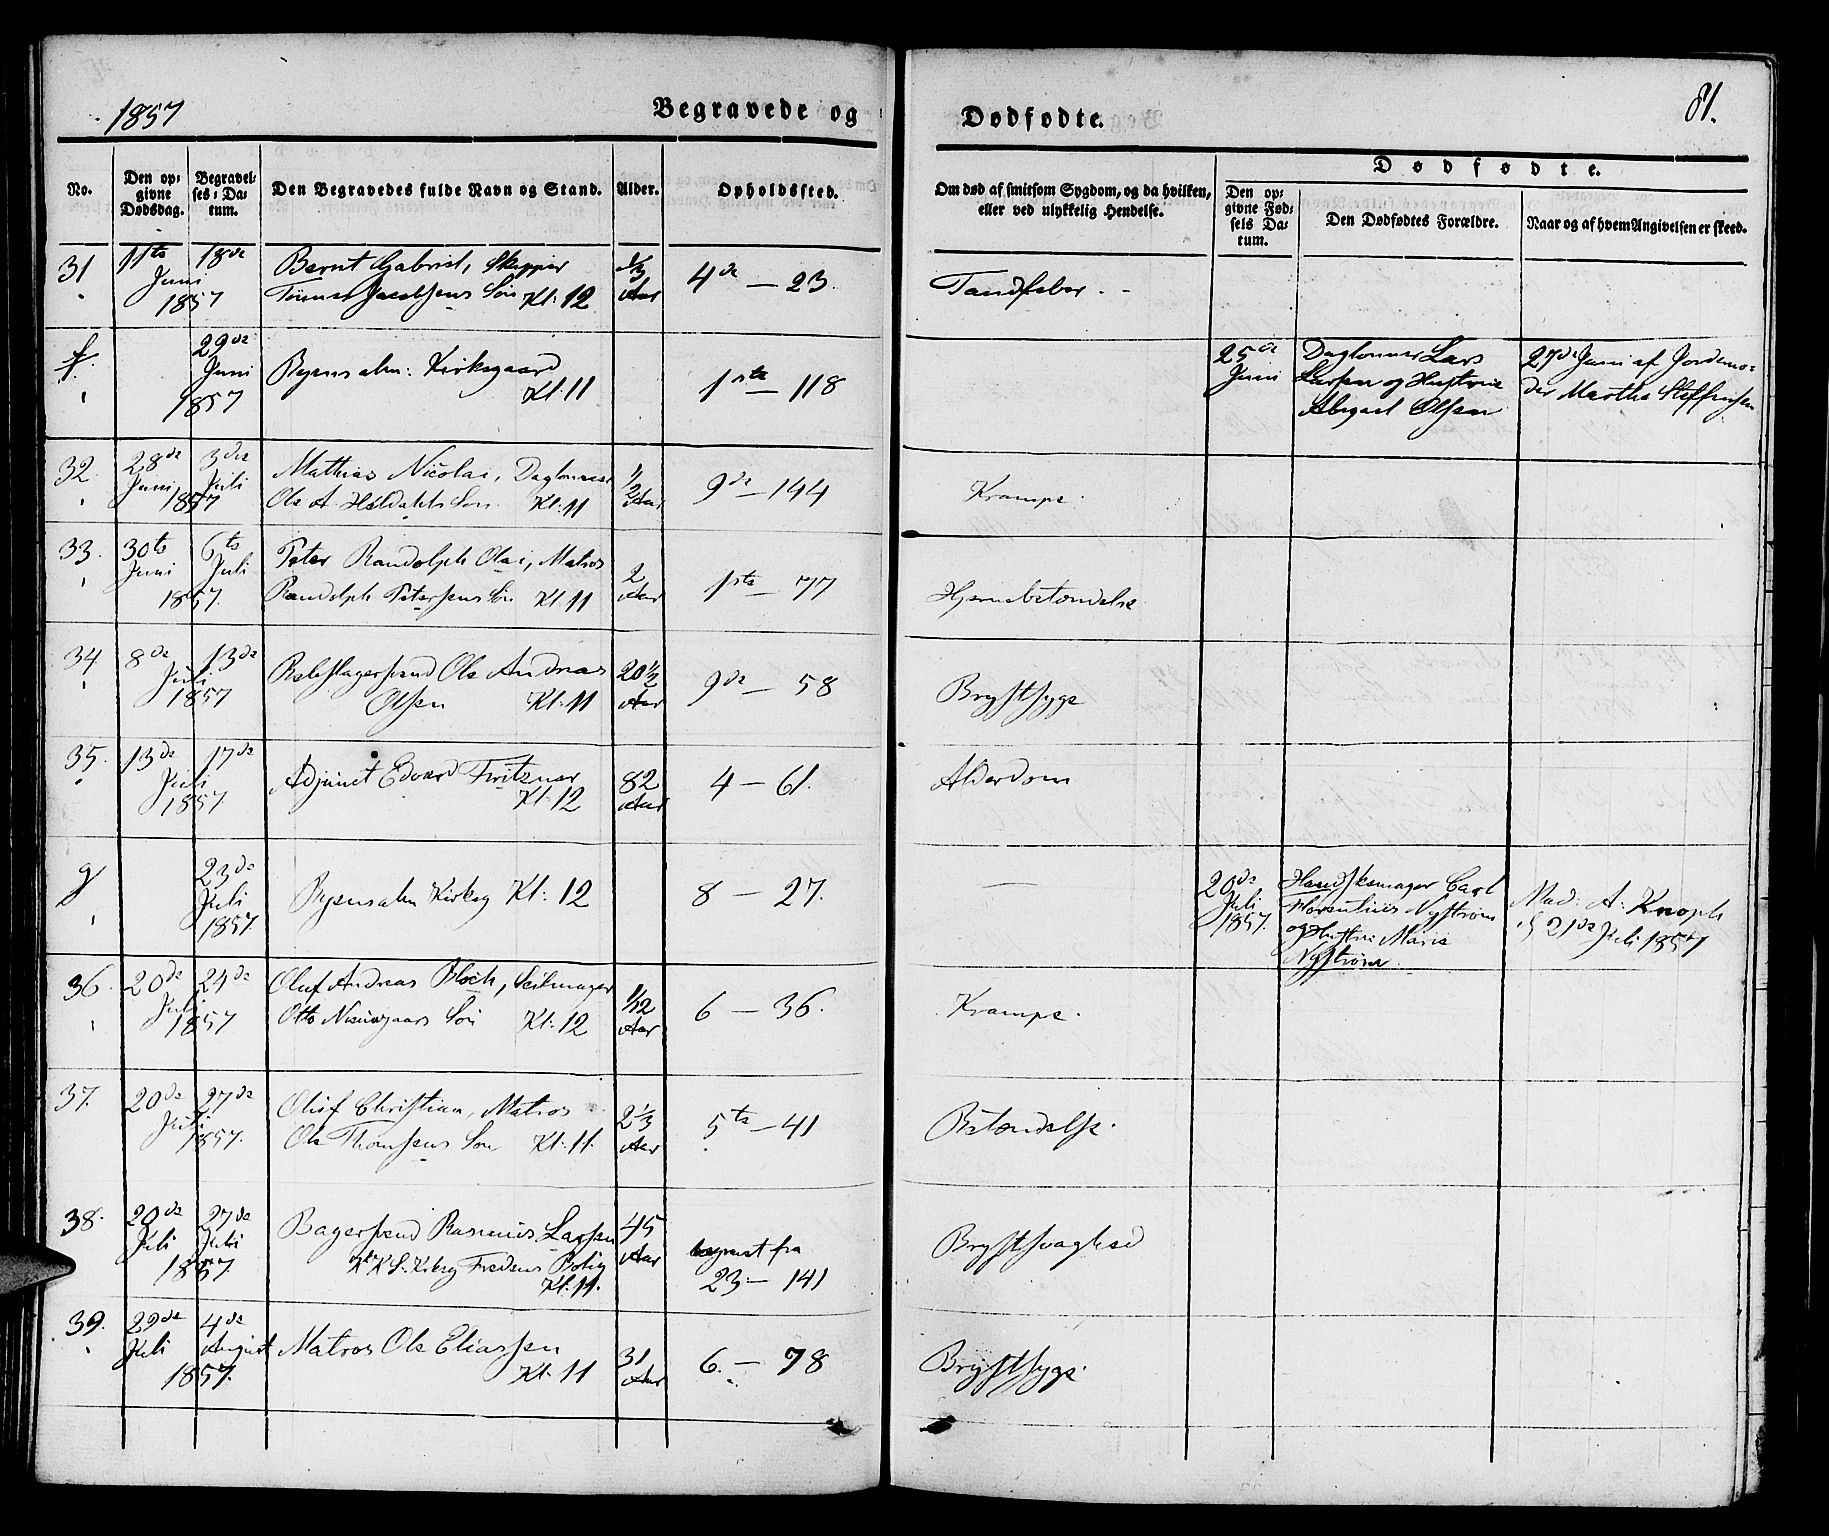 1857
Begravede og Dødfødte.
81.
No.
Den opgivne Dødsdag.
Begravelses-Datum.
Den Begravedes fulde Navn og Stand.
Alder.
Opholdssted.
Om død af smitsom Sygdom, og da hvilken, eller ved ulykkelig Hendelse.
Dødfødte.
Den opgivne Fødsels Datum.
Den Dødfødtes Forældre.
Naar og af hvem Angivelsen er skeed.
31 11te 18de Bernt Gabriel, Skipper 1/3 4de — 23. Tandfeber.
Juni 1857 Jacobsens Søn Kl: 12 Aar
f. 29de Juni 1857 Byens alm: Kirkegaard Kl: 11 1ste — 118
25de Juni Daglønner Lars
Larsen og Hustrue
Abigael Olsen
27de Juni af Jordemo-
der Martha Steffensen
32. 28de Juni 3die Juli 1857 Mathias Nicolai, Daglønner 1/2 Aar 9de — 144 Krampe.
Ole A. Heldahls Søn Kl: 11
33. 30te Juni 6te Juli 1857. Peter Randolph Olai, Matros 2 Aar 1ste — 77 Hjernebetændelse
Randolph Petersens Søn Kl: 11
34 8de 13de Juli 1857 Rebslagersvend Ole Andreas 20 1/2 Aar 9de — 58 Brystsyge
Olsen Kl: 11
35. 13de 17de Juli 1857 Adjunct Edvard Fritzner 82 Aar 4 — 61. Alderdom
Kl: 12
g 23de Juli 1857. Byens alm Kirkeg Kl: 12 8 — 27. —
20de Juli 1857. Handskemager Carl
Florentius Nystrøm
og Hustrue Marie
Nystrøm.
Mad: A: Knoph
d. 21de Juli 1857
36. 20de 24de Juli 1857 Oluf Andreas Bloch, Seilmager 1/12 Aar 6 — 36. Krampe.
Otto Søn Kl: 12
37. 20de 27de Juli 1857. Oluf Christian, Matros 2 1/3 Aar 5te — 41 Betændelse.
Ole Thomsens Søn Kl: 11.
38. 20de Juli 27de Juli 1857 Bagersvend Rasmus Larsen 45 Aar begravet fra 23 — 141 Brystsvaghed
Kirkeg Fredens Bolig
Kl: 11.
39. 29de Juli 4de August 1857. Matros Ole Eliassen 31 Aar 6. — 78 Brystsyge.
Kl: 11